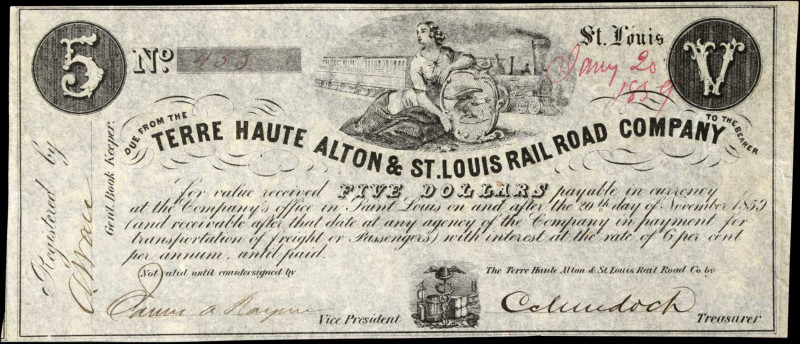 5
No. 455
St. Louis
Jany 20
1859
V
DUE FROM THE
TERRE HAUTE ALTON & ST. LOUIS RAIL ROAD COMPANY
TO THE BEARER
for value received FIVE DOLLARS payable in currency
at the Company's office in Saint Louis on and after the 20th day of November 1859
(and receivable after that date at any agency of the Company in payment for
transportation of freight or Passengers) with interest at the rate of 6 per cent
per annum, until paid.
Registered by
Genl. Book Keeper.
Not valid until countersigned by
The Terre Haute Alton & St. Louis Rail Road Co. by
Vice President
C C Murdoch
Treasurer